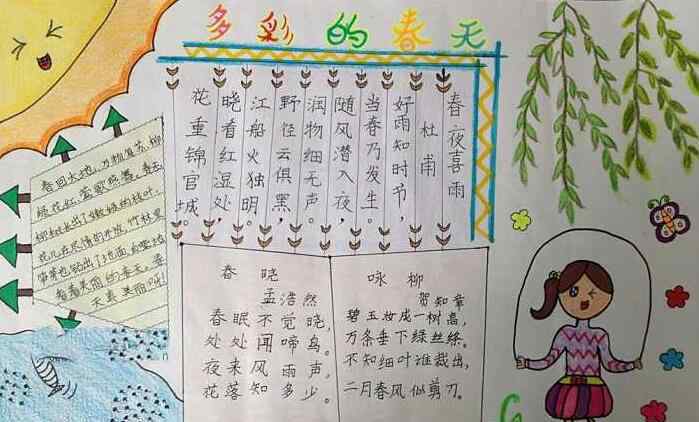 多彩的春天
春夜喜雨
杜甫
好雨知时节，
当春乃发生。
随风潜入夜，
润物细无声。
野径云俱黑，
江船火独明。
晓看红湿处，
花重锦官城。
春回大地，万物复苏，柳
绿花红，莺歌燕舞，春天
柳树长出了嫩绿的枝叶，
花儿在尽情的开放，竹林里
笋芽也钻出了地面，
看着美丽的春天，春
天真美丽呀！
春晓
孟浩然
春眠不觉晓，
处处闻啼鸟。
夜来风雨声，
花落知多少。
咏柳
贺知章
碧玉妆成一树高，
万条垂下绿丝绦。
不知细叶谁裁出，
二月春风似剪刀。